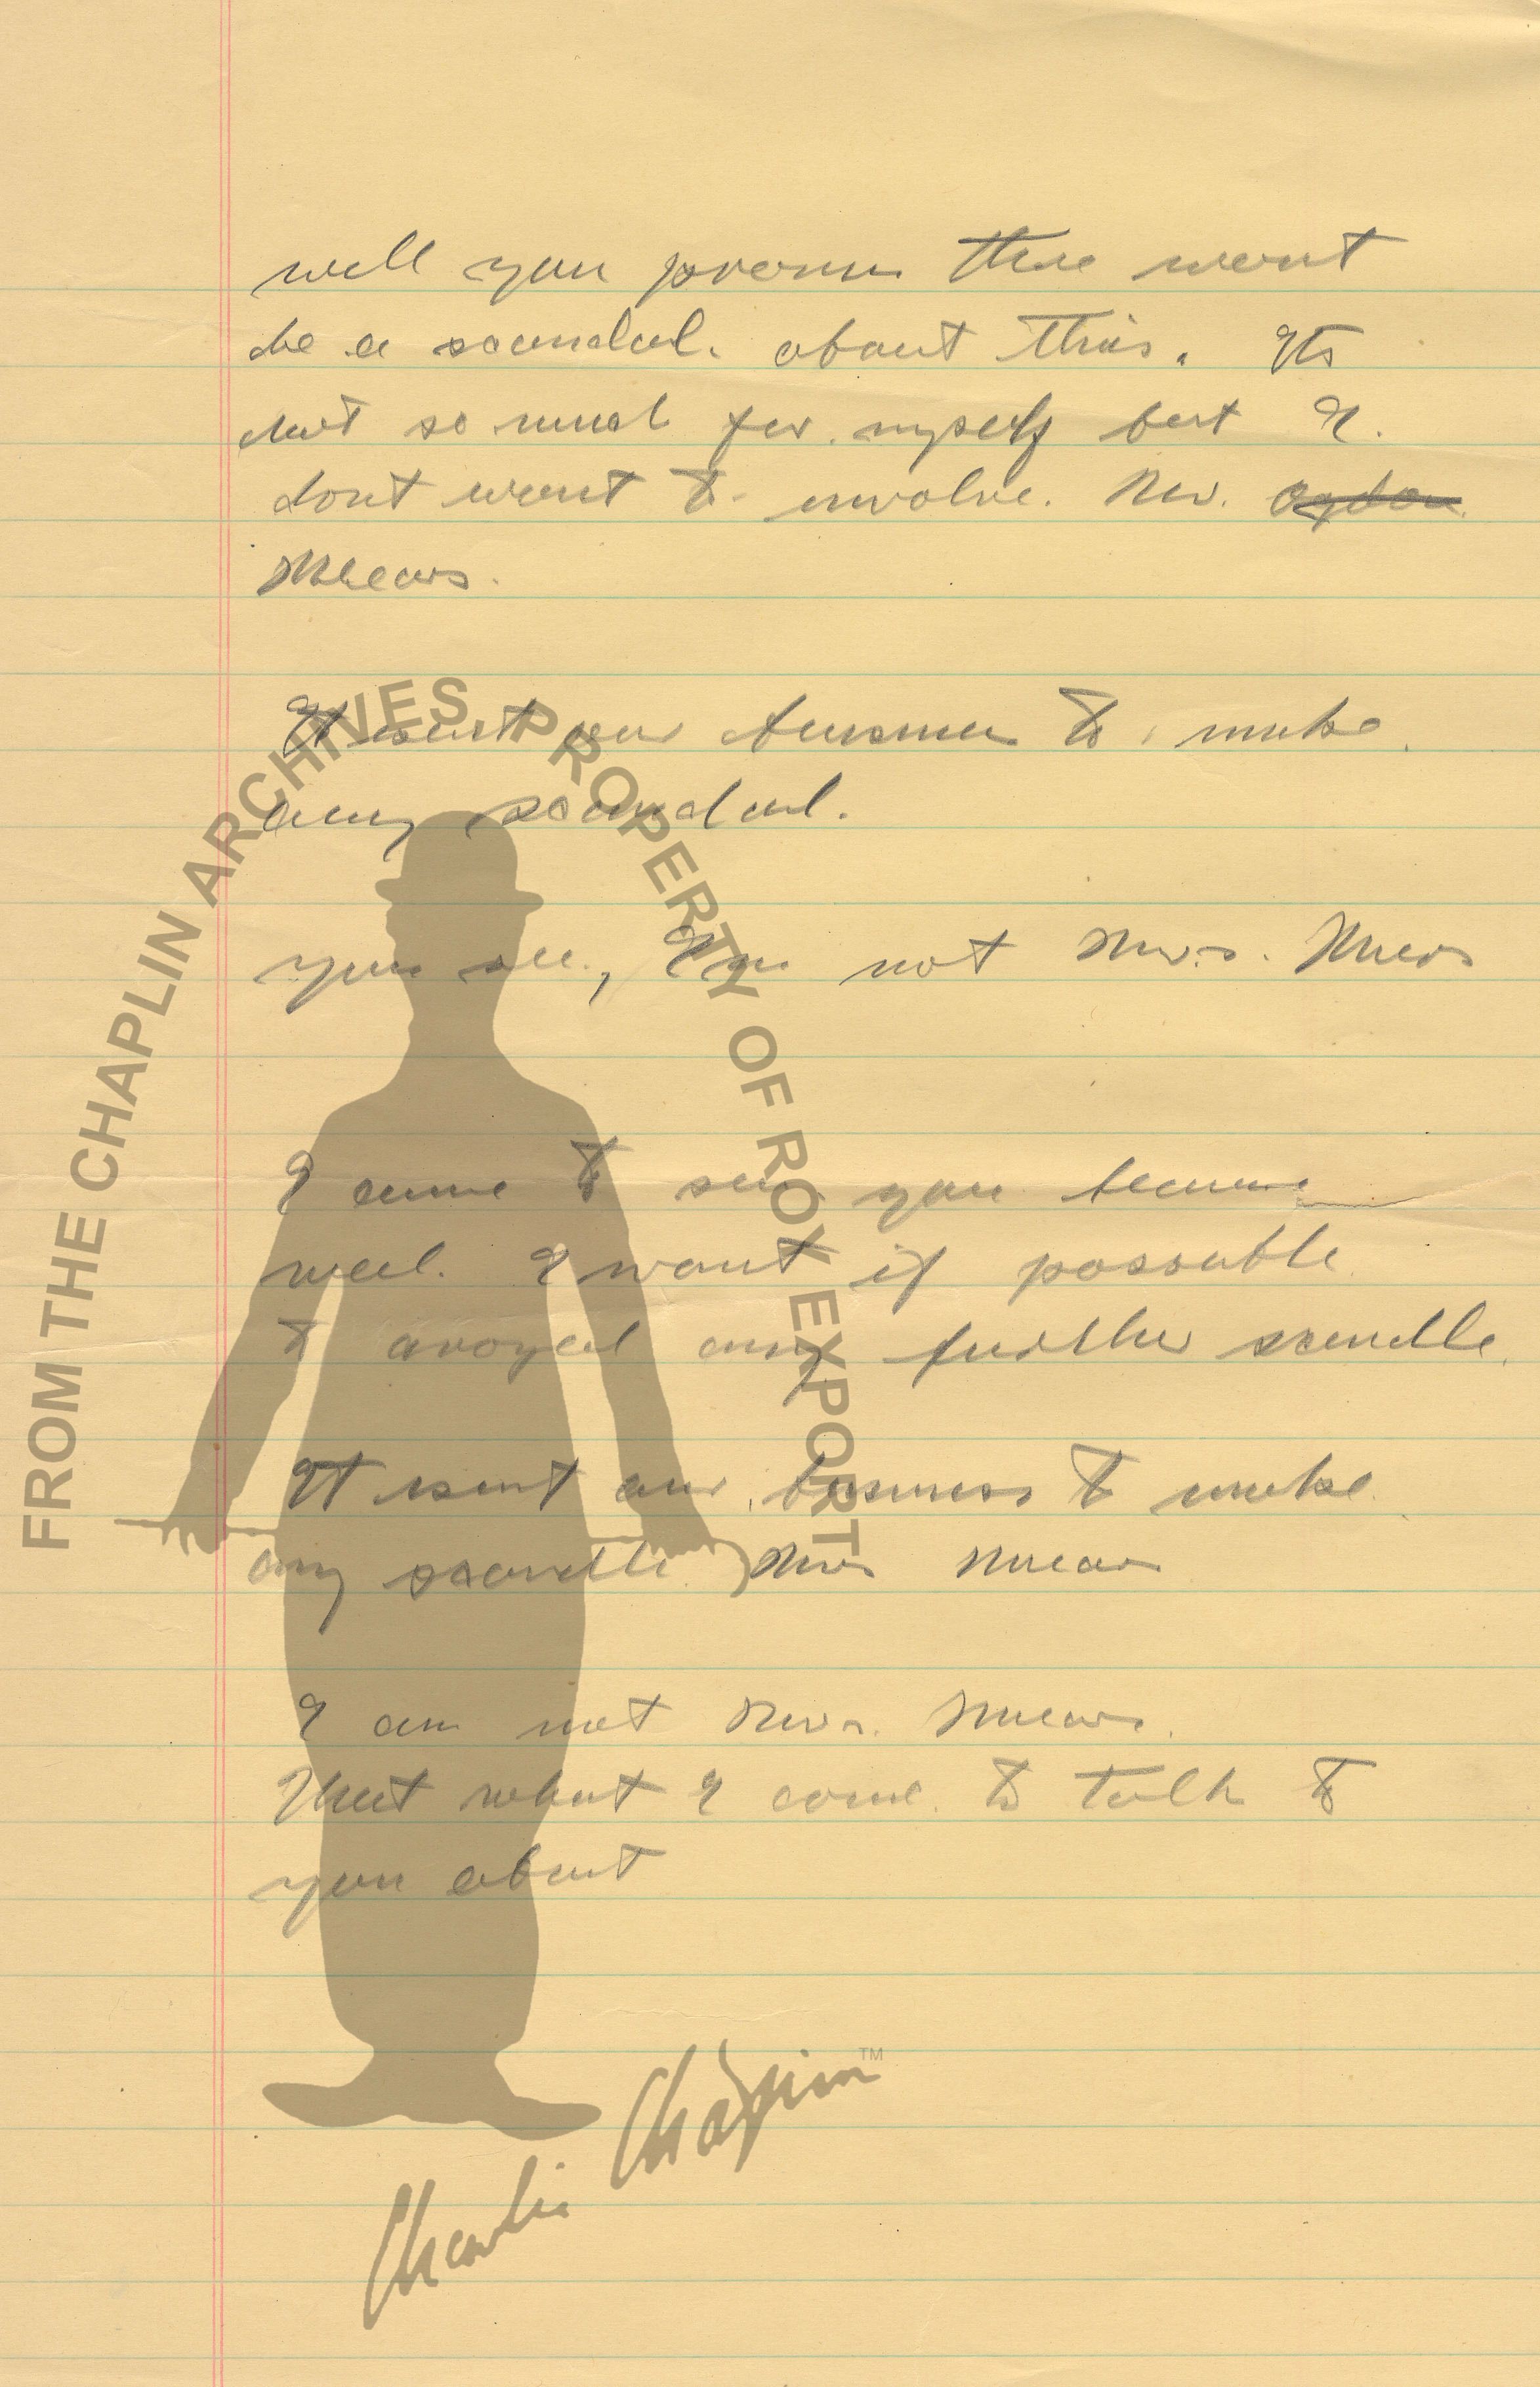 will you promise there wont
be a scandal. about this. Its
not so much for myself but I.
dont want to involve. Mr. Ogden
Mears.
It isent our business to make
any scandal.
you see, I'm not Mrs. Mears
I came to see you because
well. I want if possible
to avoyed any further scandle.
It isent our business to make
any scandle Mrs Mears
I am not Mrs. Mears.
That what I come to talk to
you about
FROM THE CHAPLIN ARCHIVES, PROPERTY OF ROY EXPORT
Charlie Chaplin™